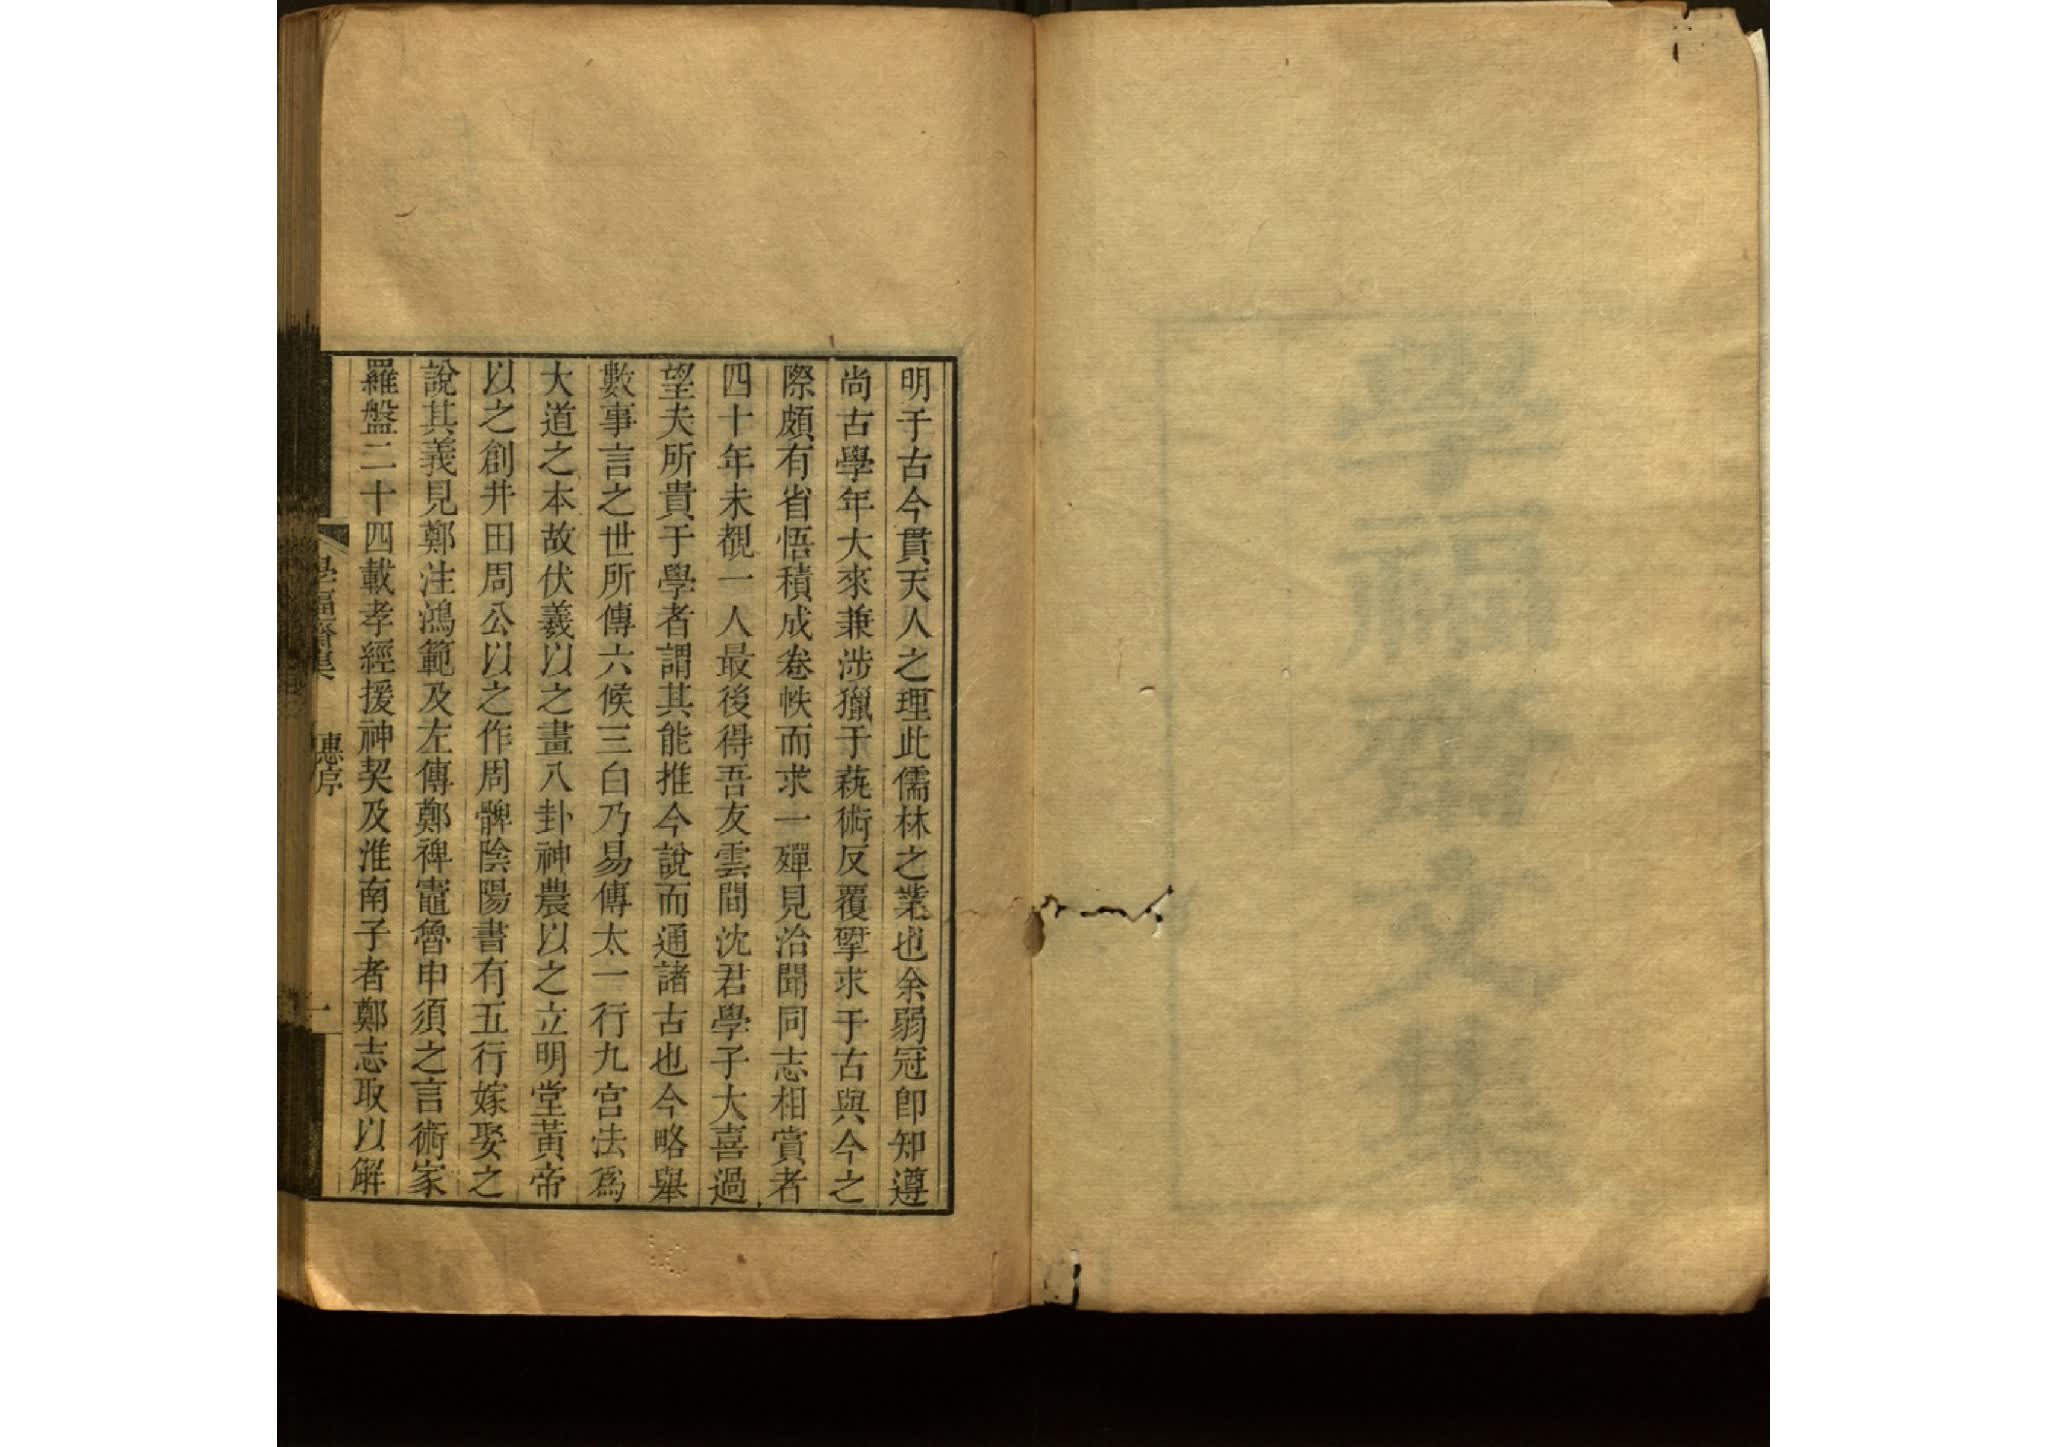 學福齋文集
明于古今貫天人之理此儒林之業也余弱冠卽知遵
尚古學年大來兼涉獵于蓺術反覆揅求于古與今之
際頗有省悟積成卷帙而求一殫見洽聞同志相賞者
四十年未覩一人最後得吾友雲間沈君學子大喜過
望夫所貴于學者謂其能推今說而通諸古也今略舉
數事言之世所傳六候三白乃易傳太一行九宮法爲
大道之本故伏羲以之畫八卦神農以之立明堂黃帝
以之創井田周公以之作周髀陰陽書有五行嫁娶之
說其義見鄭注鴻範及左傳鄭裨竈魯申須之言術家
羅盤二十四載孝經援神契及淮南子者鄭志取以解
學福齋集 惠序 一